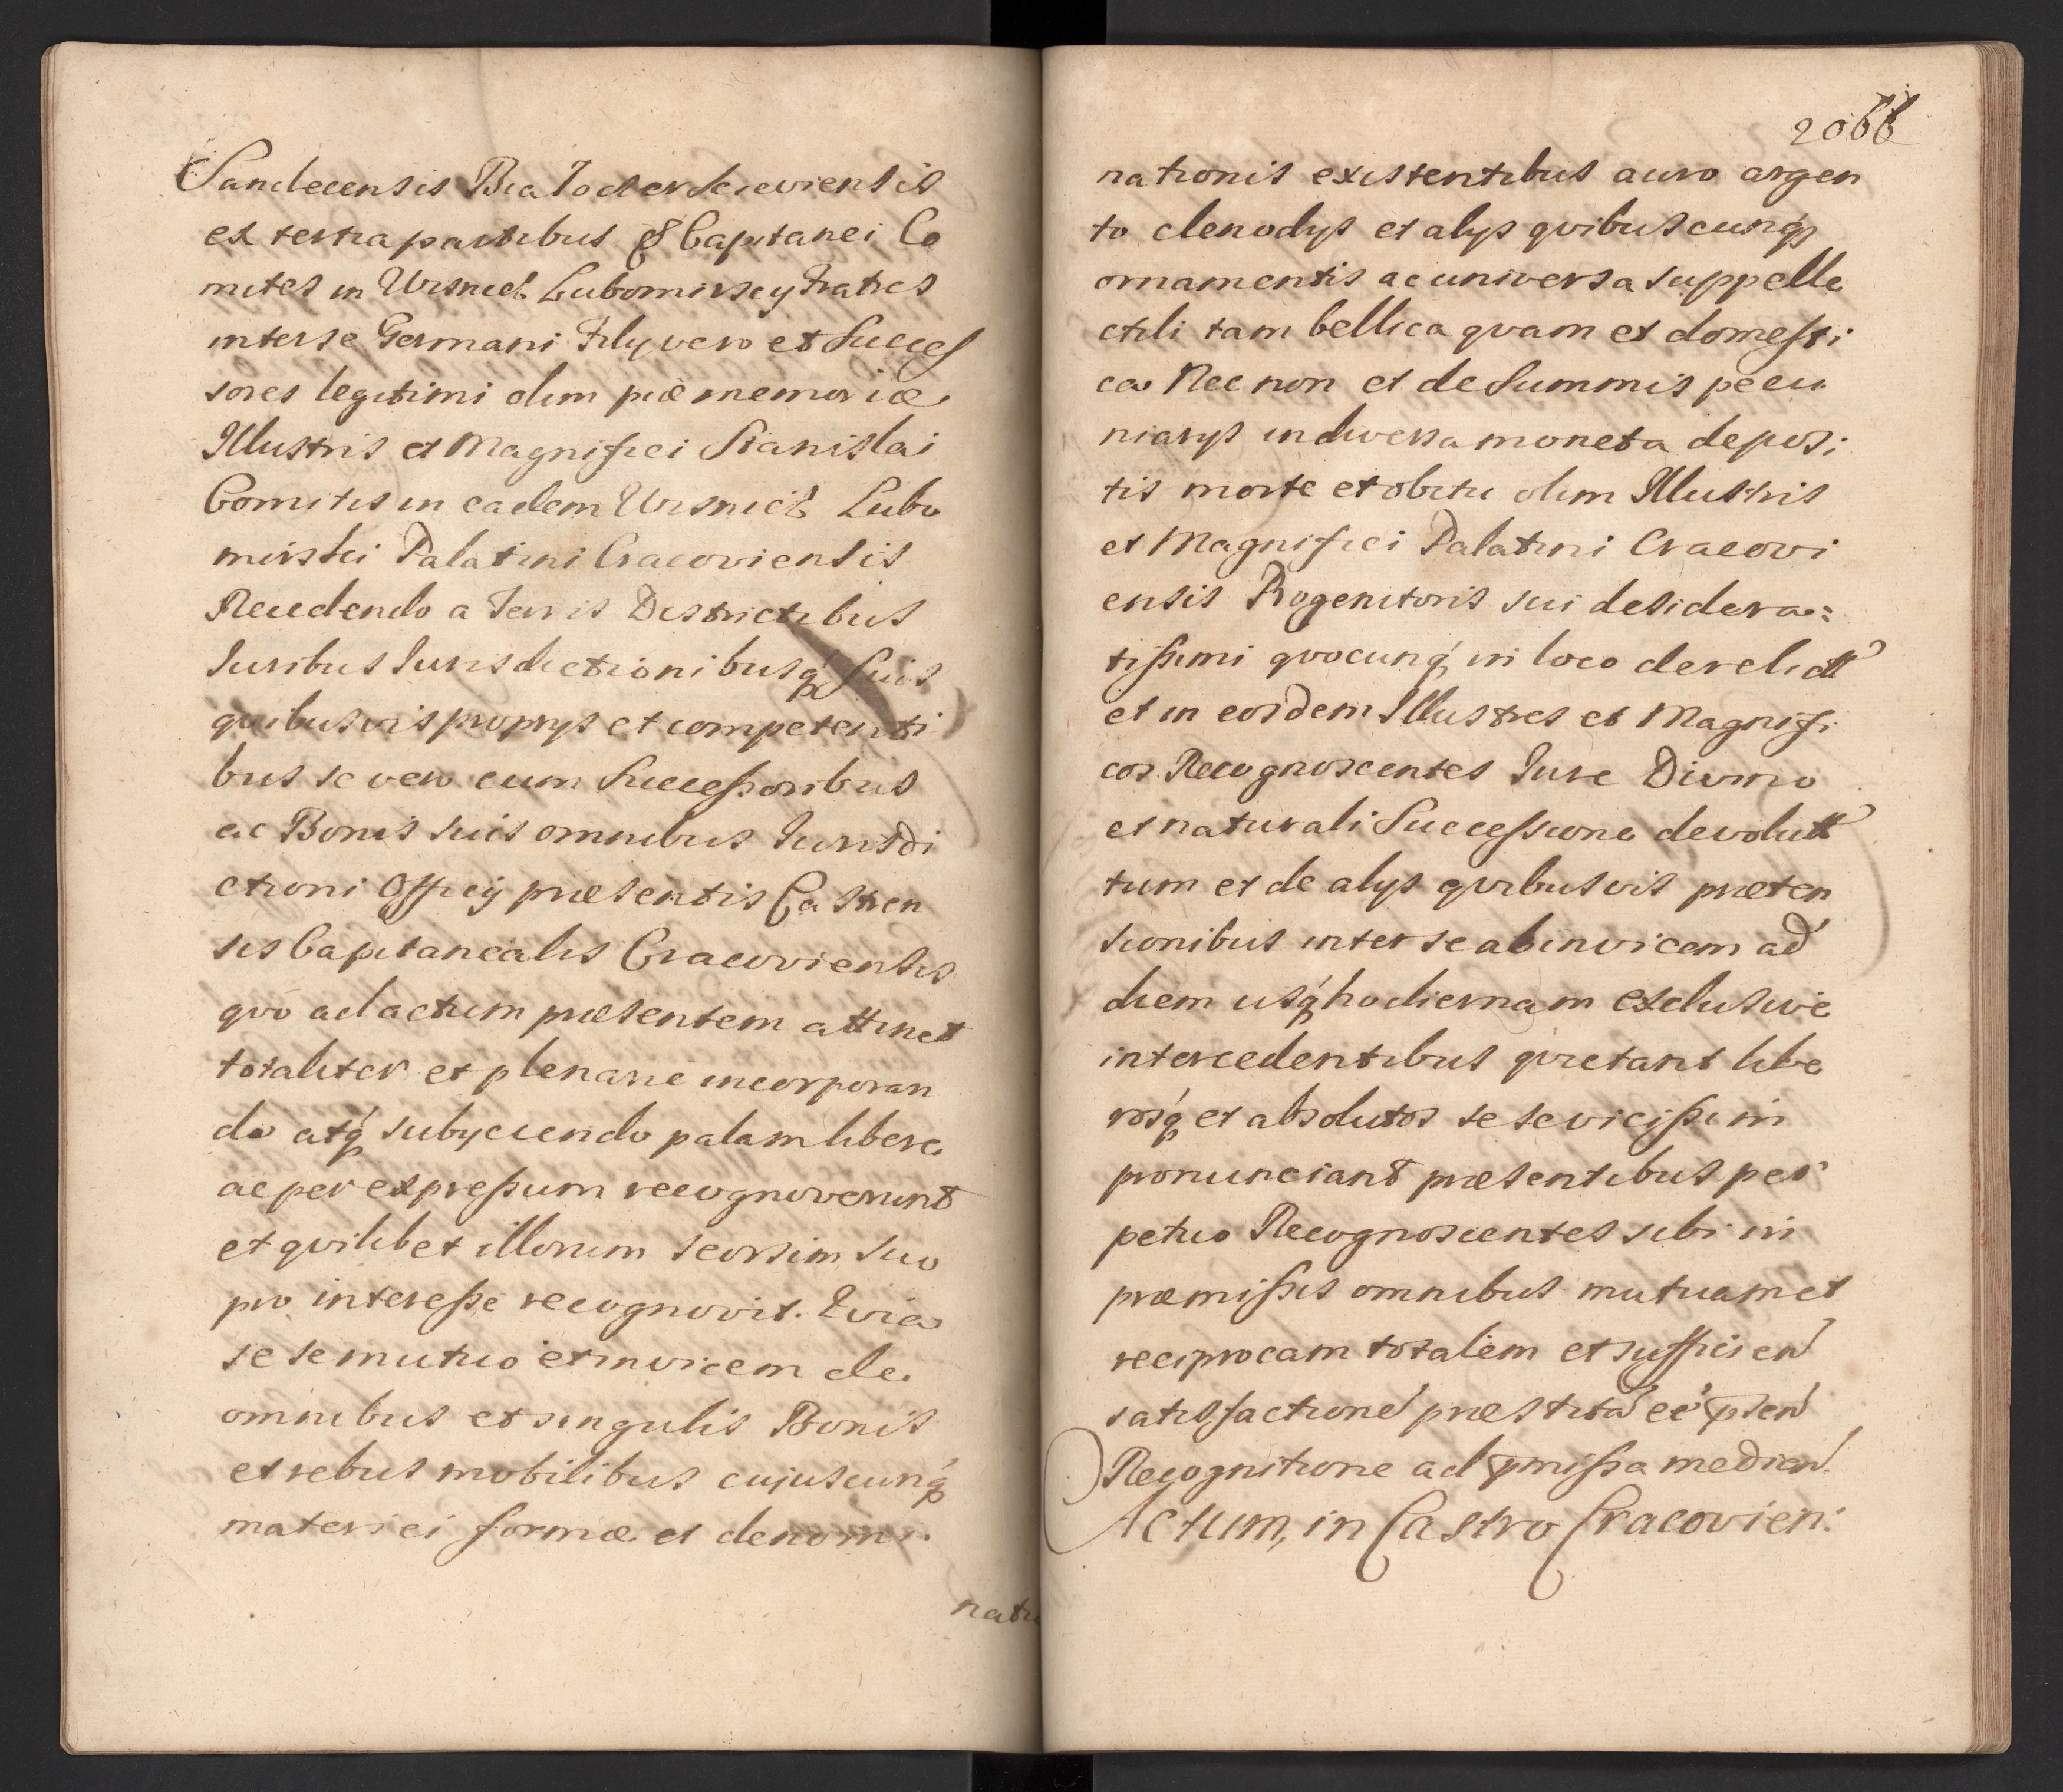 Sandecensis Bialocerkieviensis
ex tertia partibus & Capitanei Co
mites in Wisnicz Lubomirscy Fratres
inter se Germani Filij vero et Succes
sores legitimi olim piæ memoriæ
Illustris et Magnifici Stanislai
Comitis in eadem Wisnicz Lubo
mirski Palatini Cracoviensis
Recedendo a Terris Districtibus
Iuribus Iurisdictionibusq́ Suis
quibusvis proprijs et competenti
bus se vero cum Successoribus
ac Bonis suis omnibus Iurisdi
ctioni Officij præsentis Castren
sis Capitanealis Cracoviensis
qvo ad actum præsentem attinet
totaliter et plenarie incorporan
do atq́ subijciendo palam libere
ac per expressum recognoverunt
et qvilibet illorum seorsim suo
pro interesse recognovit. Qvia
se se mutuo et invicem de
omnibus et singulis Bonis
et rebus mobilibus cujuscunq́
materiei formæ et denomi.
natio
2066
nationis existentibus auro argen
to clenodijs et alijs qvibuscunq́
ornamentis ac universa suppelle
ctili tam bellica qvam et domesti
ca Nec non et de Summis pecu
niarijs in diversa moneta deposi
tis morte et obitu olim Illustris
et Magnifici Palatini Cracovi
ensis Progenitoris sui desidera:
tissimi qvocunq́ in loco derelictt
et in eosdem Illustres et Magnifi
cos Recognoscentes Iure Divino
et naturali Successione devolutt
tum et de alijs qvibusvis præten
sionibus inter se ab invicem ad
diem usq́ hodiernam exclusive
intercedentibus qvietant libe
rosq́ et absolutos se se vicissim
pronunciant præsentibus per
petuo Recognoscentes sibi in
præmissis omnibus mutuam et
reciprocam totalem et sufficien
satisfactione præstita ee pren
Recognitione ad pmissa median.
Actum, in Castro Cracovien: